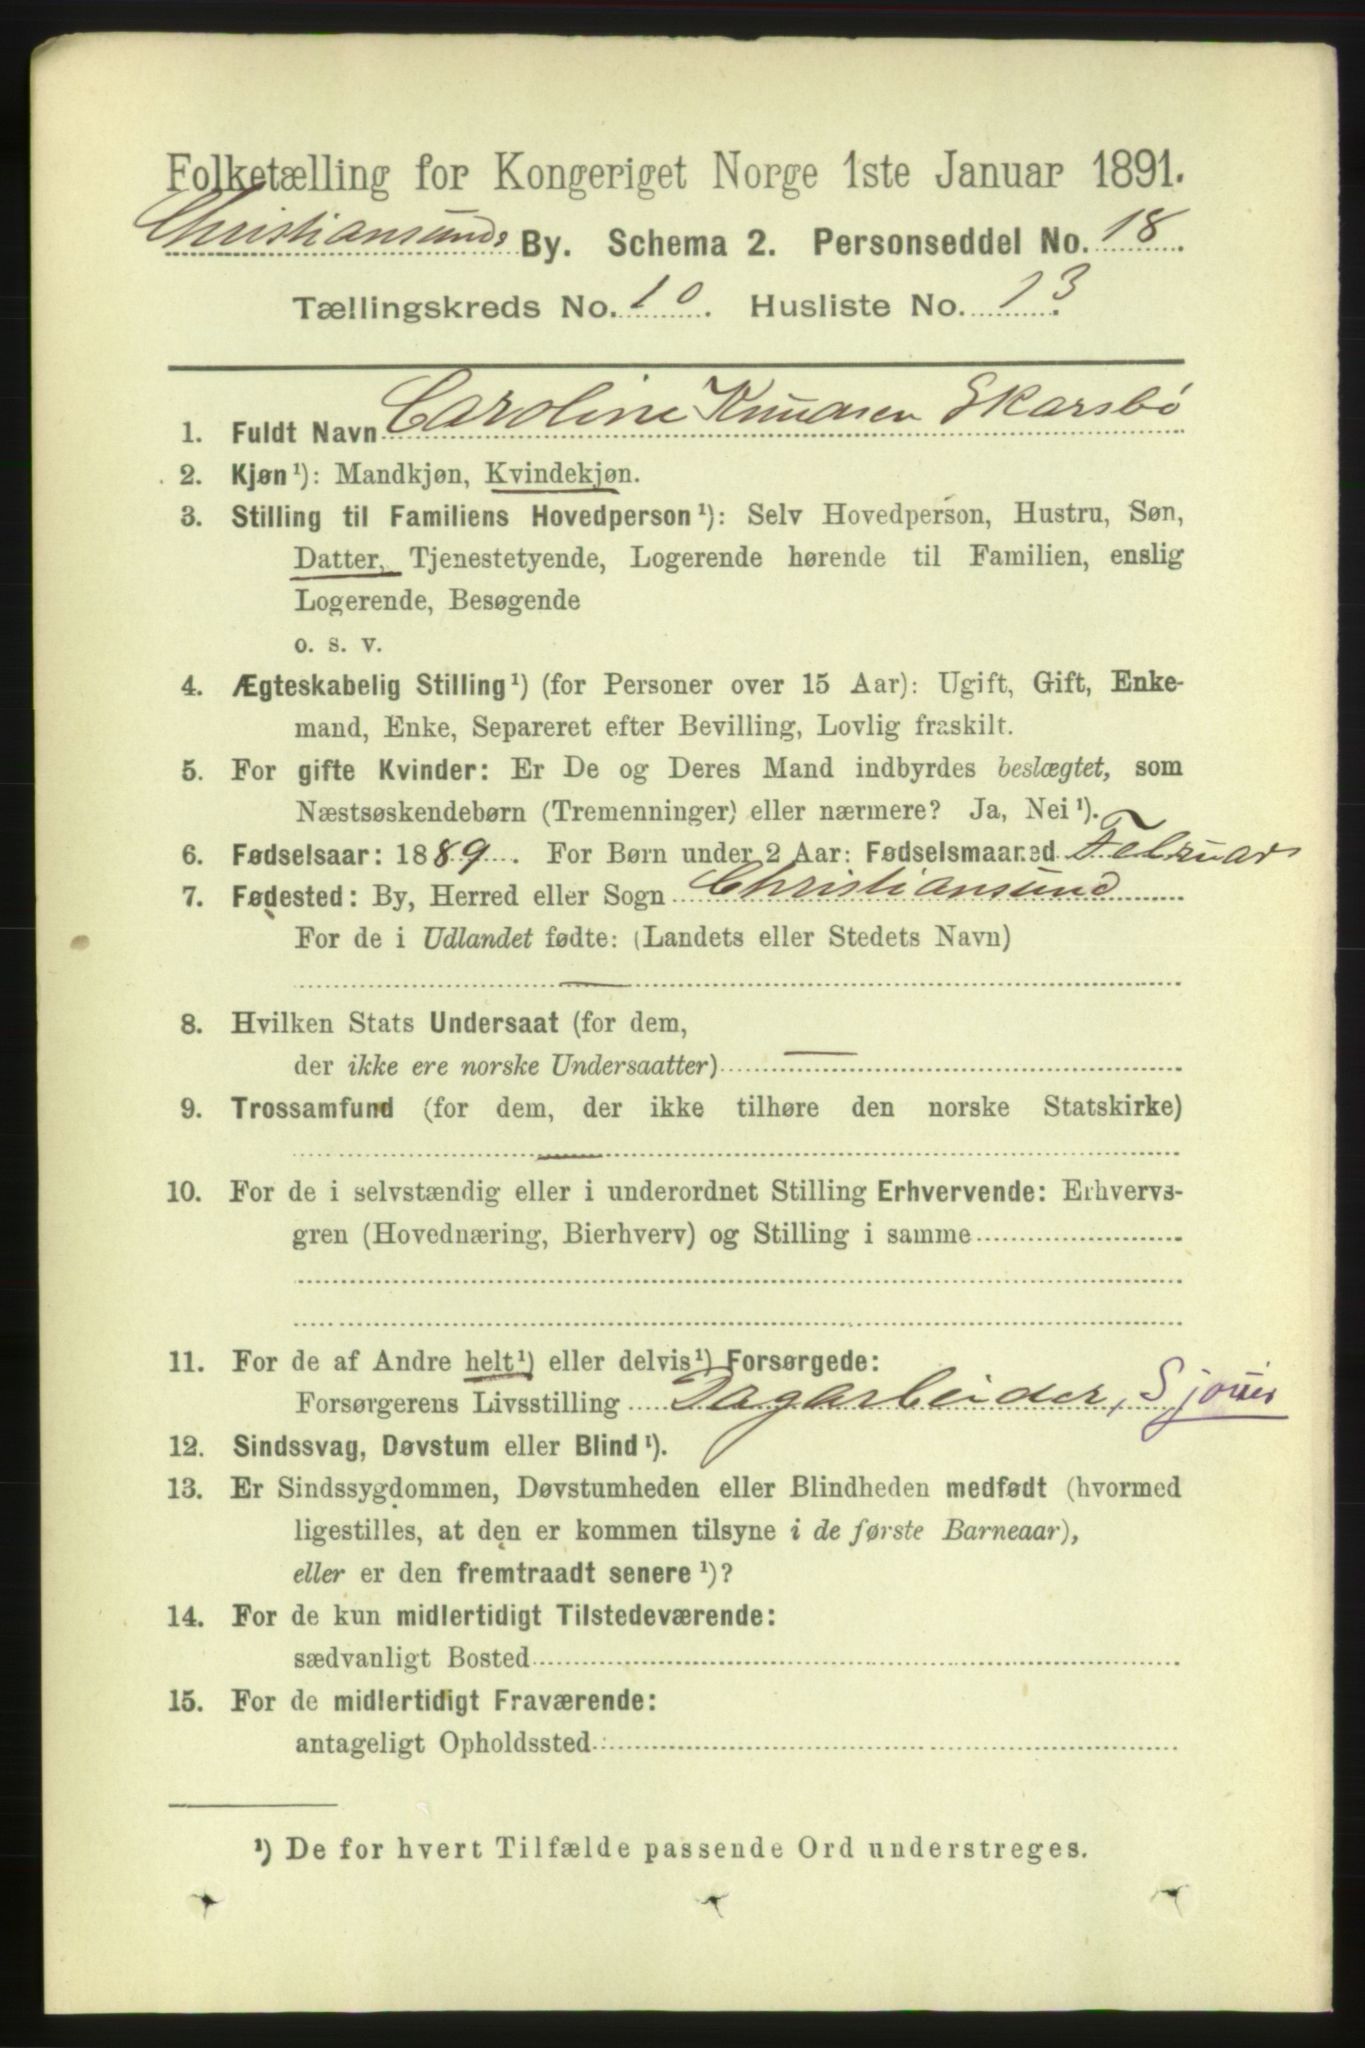 Folketælling for Kongeriget Norge 1ste Januar 1891.
Christiansunds By. Schema 2. Personseddel No. 18.
Tællingskreds No. 10. Husliste No. 13.
1. Fuldt Navn Caroline Knudsen Skarsbö
2. Kjøn¹): Mandkjøn, Kvindekjøn.
3. Stilling til Familiens Hovedperson¹): Selv Hovedperson, Hustru, Søn,
Datter, Tjenestetyende, Logerende hørende til Familien, enslig
Logerende, Besøgende
o. s. v.
4. Ægteskabelig Stilling¹) (for Personer over 15 Aar): Ugift, Gift, Enke-
mand, Enke, Separeret efter Bevilling, Lovlig fraskilt.
5. For gifte Kvinder: Er De og Deres Mand indbyrdes beslægtet, som
Næstsøskendebørn (Tremenninger) eller nærmere? Ja, Nei¹).
6. Fødselsaar: 1889. For Børn under 2 Aar: Fødselsmaaned Februar
7. Fødested: By, Herred eller Sogn Christiansund
For de i Udlandet fødte: (Landets eller Stedets Navn)
—
8. Hvilken Stats Undersaat (for dem,
der ikke ere norske Undersaatter) —
9. Trossamfund (for dem, der ikke tilhøre den norske Statskirke)
—
10. For de i selvstændig eller i underordnet Stilling Erhvervende: Erhvervs-
gren (Hovednæring, Bierhverv) og Stilling i samme
11. For de af Andre helt¹) eller delvis¹) Forsørgede:
Forsørgerens Livsstilling Dagarbeider, Sjouer
12. Sindssvag, Døvstum eller Blind¹).
13. Er Sindssygdommen, Døvstumheden eller Blindheden medfødt (hvormed
ligestilles, at den er kommen tilsyne i de første Barneaar),
eller er den fremtraadt senere¹)?
14. For de kun midlertidigt Tilstedeværende:
sædvanligt Bosted
15. For de midlertidigt Fraværende:
antageligt Opholdssted
¹) De for hvert Tilfælde passende Ord understreges.